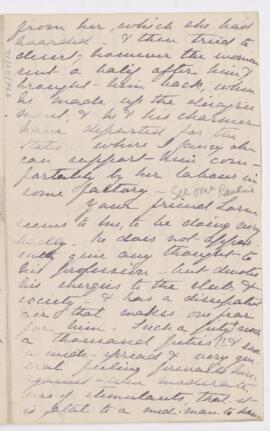 from her, which she had
hoarded - & then tried to
desert, however the woman
sent a baliff after him &
brought him back, when
he made up the disagree
ment, & he & his charmer
have departed for the
States where I fancy she
can support him com-
fortably by her labour in
some factory - See over
Your friend
seems to me, to be doing very
badly. he does not appar-
ently give any thought to
his profession - but devotes
his energies to the club, &
society - & has a dissipated
air that makes one fear
for him. Such a pity
a thousand pities!! &
a wide-spread & very gen-
eral feeling prevails here
against immoderate
use of stimulants, that it
is fatal to a med. man to have